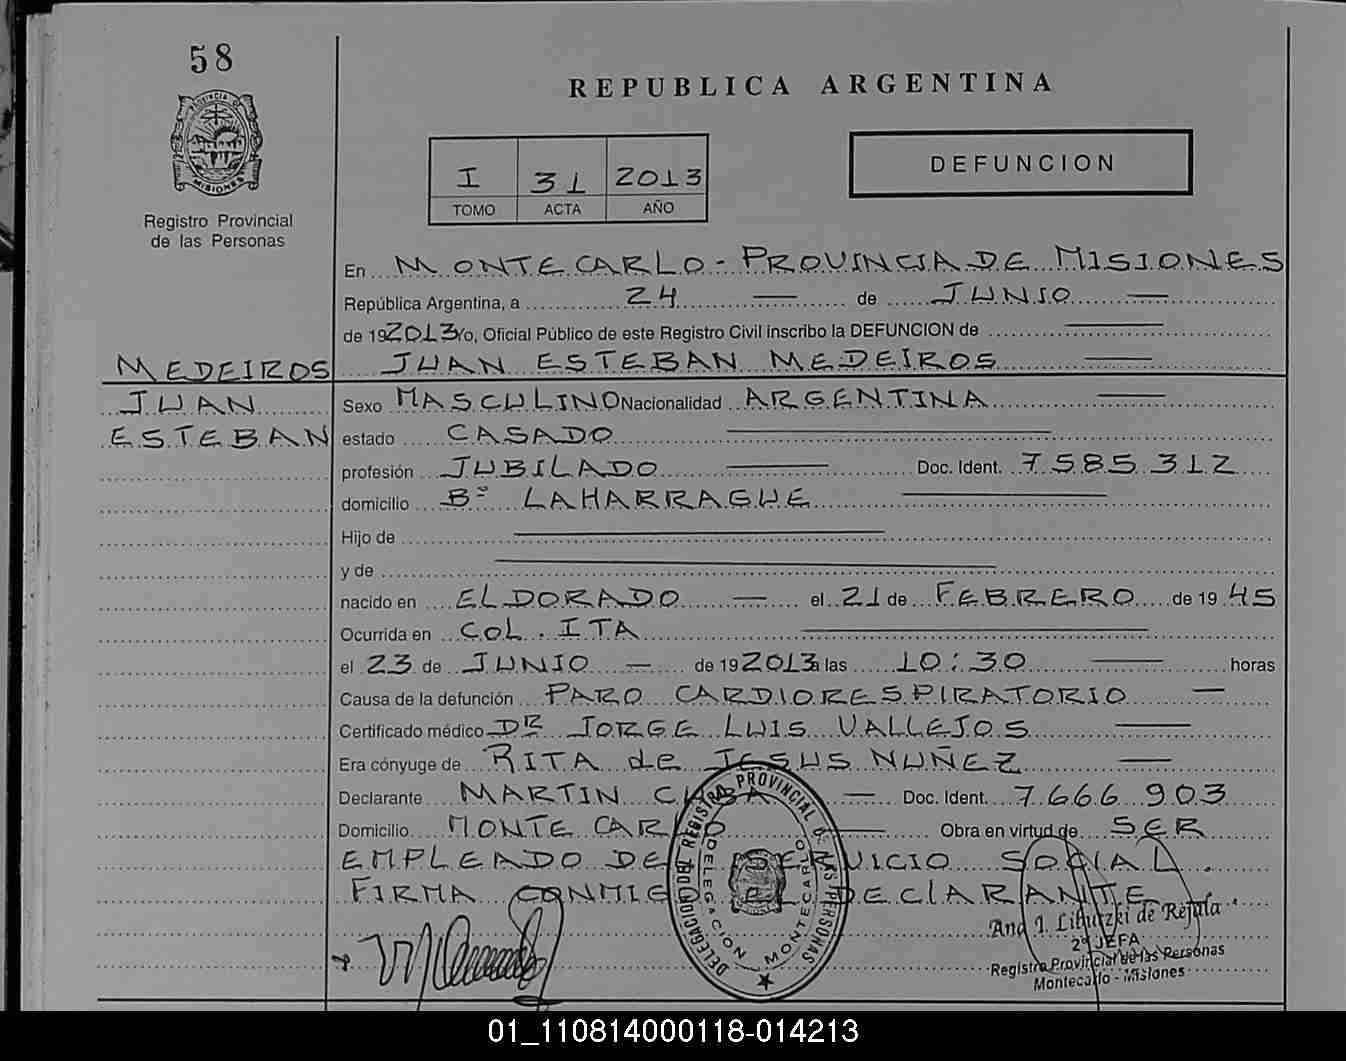 58
REPUBLICA ARGENTINA
PROVINCIA D
MISIONES
Registro Provincial
de las Personas
I 31 2013
TOMO ACTA AÑO
DEFUNCION
En MONTECARLO - PROVINCIA DE MISIONES
República Argentina, a 24 — de JUNIO —
de 192013 Yo, Oficial Público de este Registro Civil inscribo la DEFUNCION de —
MEDEIROS JUAN ESTEBAN MEDEIROS —
JUAN Sexo MASCULINO Nacionalidad ARGENTINA —
ESTEBAN estado CASADO —
profesión JUBILADO — Doc. Ident. 7585312
domicilio Bº LAHARRAGUE —
Hijo de —
y de —
nacido en ELDORADO — el 21 de FEBRERO de 19 45
Ocurrida en COL. ITA —
el 23 de JUNIO — de 192013 a las 10:30 — horas
Causa de la defunción PARO CARDIORESPIRATORIO —
Certificado médico DR JORGE LUIS VALLEJOS —
Era cónyuge de RITA de JESUS NUÑEZ —
Declarante MARTIN — Doc. Ident. 7.666.903
Domicilio MONTECARLO — Obra en virtud de SER
EMPLEADO DE SERVICIO SOCIAL.
FIRMA CONMIGO EL DECLARANTE
DELEGACION DEL REGISTRO PROVINCIAL DE LAS PERSONAS
DELEGACION MONTECARLO
Ana J. de
2º JEFA
Registro Provincial de las Personas
Montecarlo - Misiones
01_110814000118-014213